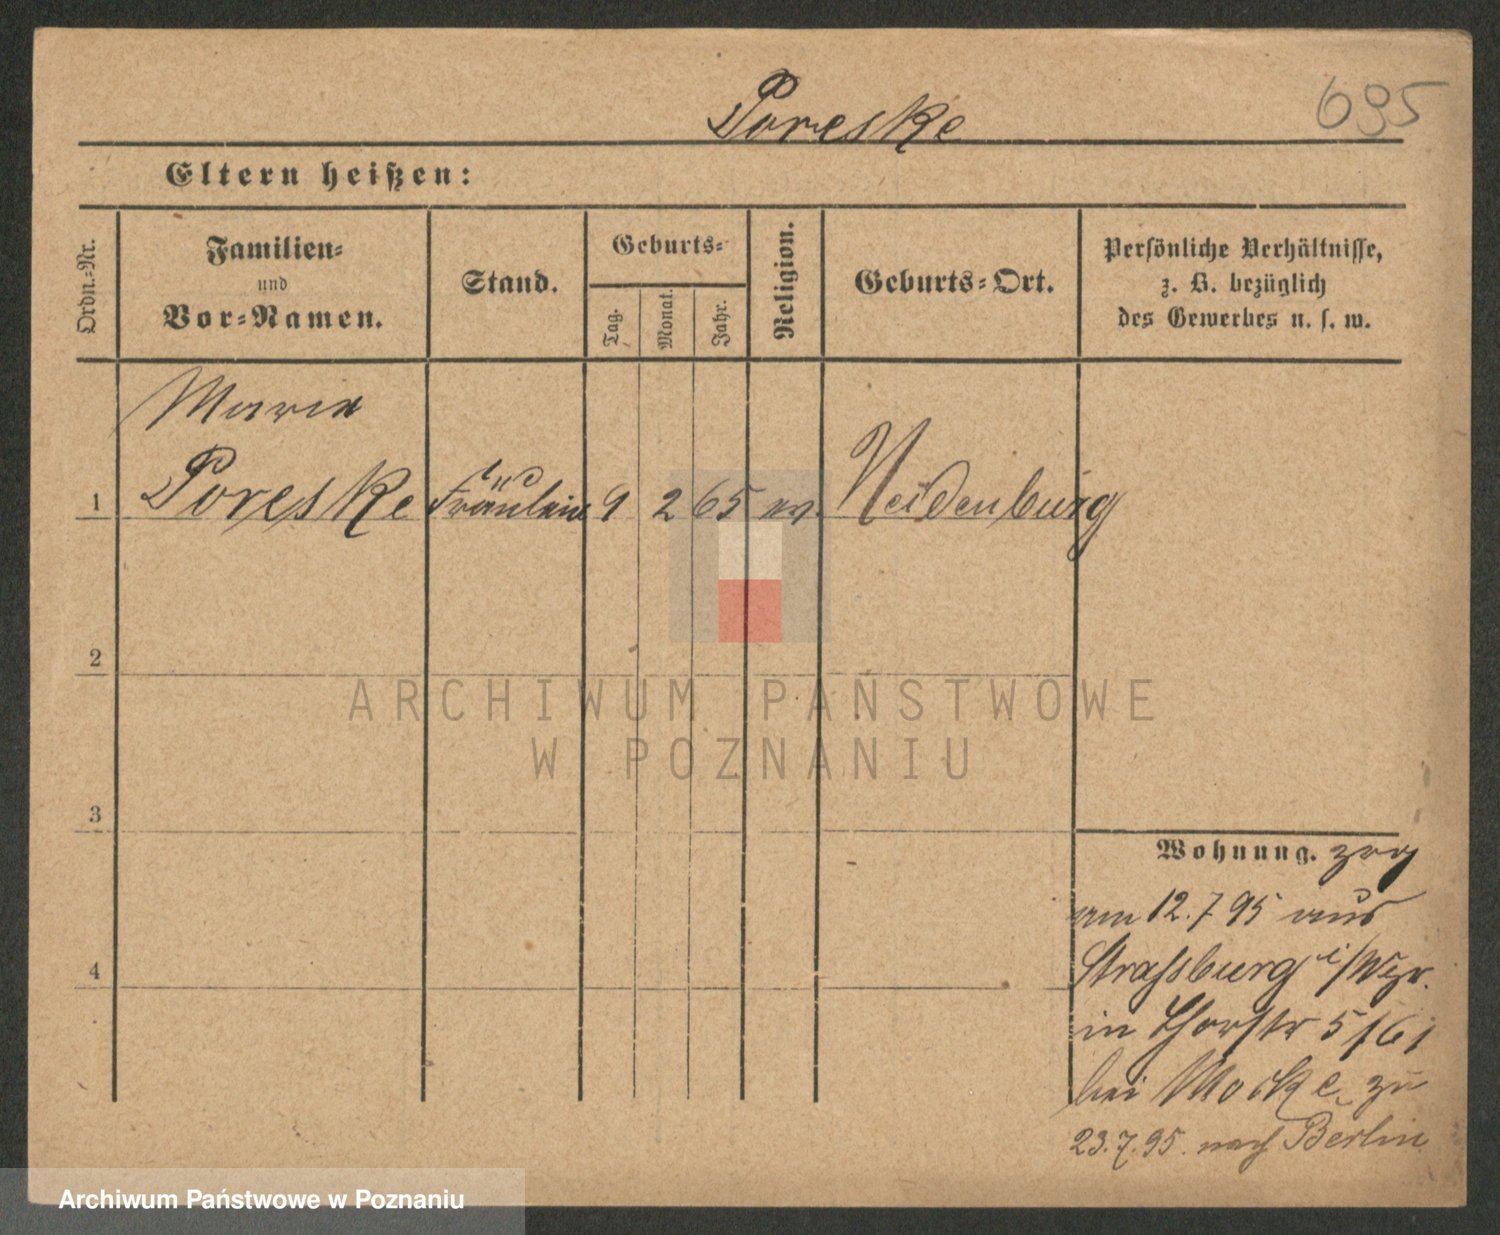 Poreske
695
Eltern heißen:
Ordn.-Nr.
Familien-
und
Vor-Namen.
Stand.
Geburts-
Tag.
Monat.
Jahr.
Religion.
Geburts-Ort.
Persönliche Verhältnisse,
z. B. bezüglich
des Gewerbes u. s. w.
Marie
1 Poreske Fräulein 9 2 65 ev. Neidenburg
2
3
4
Wohnung. zog
am 12.7 95 aus
Strassburg i/Wpr.
in Thorstr 5/6 I
bei Mocke zu
23.7.95. nach Berlin
ARCHIWUM PAŃSTWOWE
W POZNANIU
Archiwum Państwowe w Poznaniu